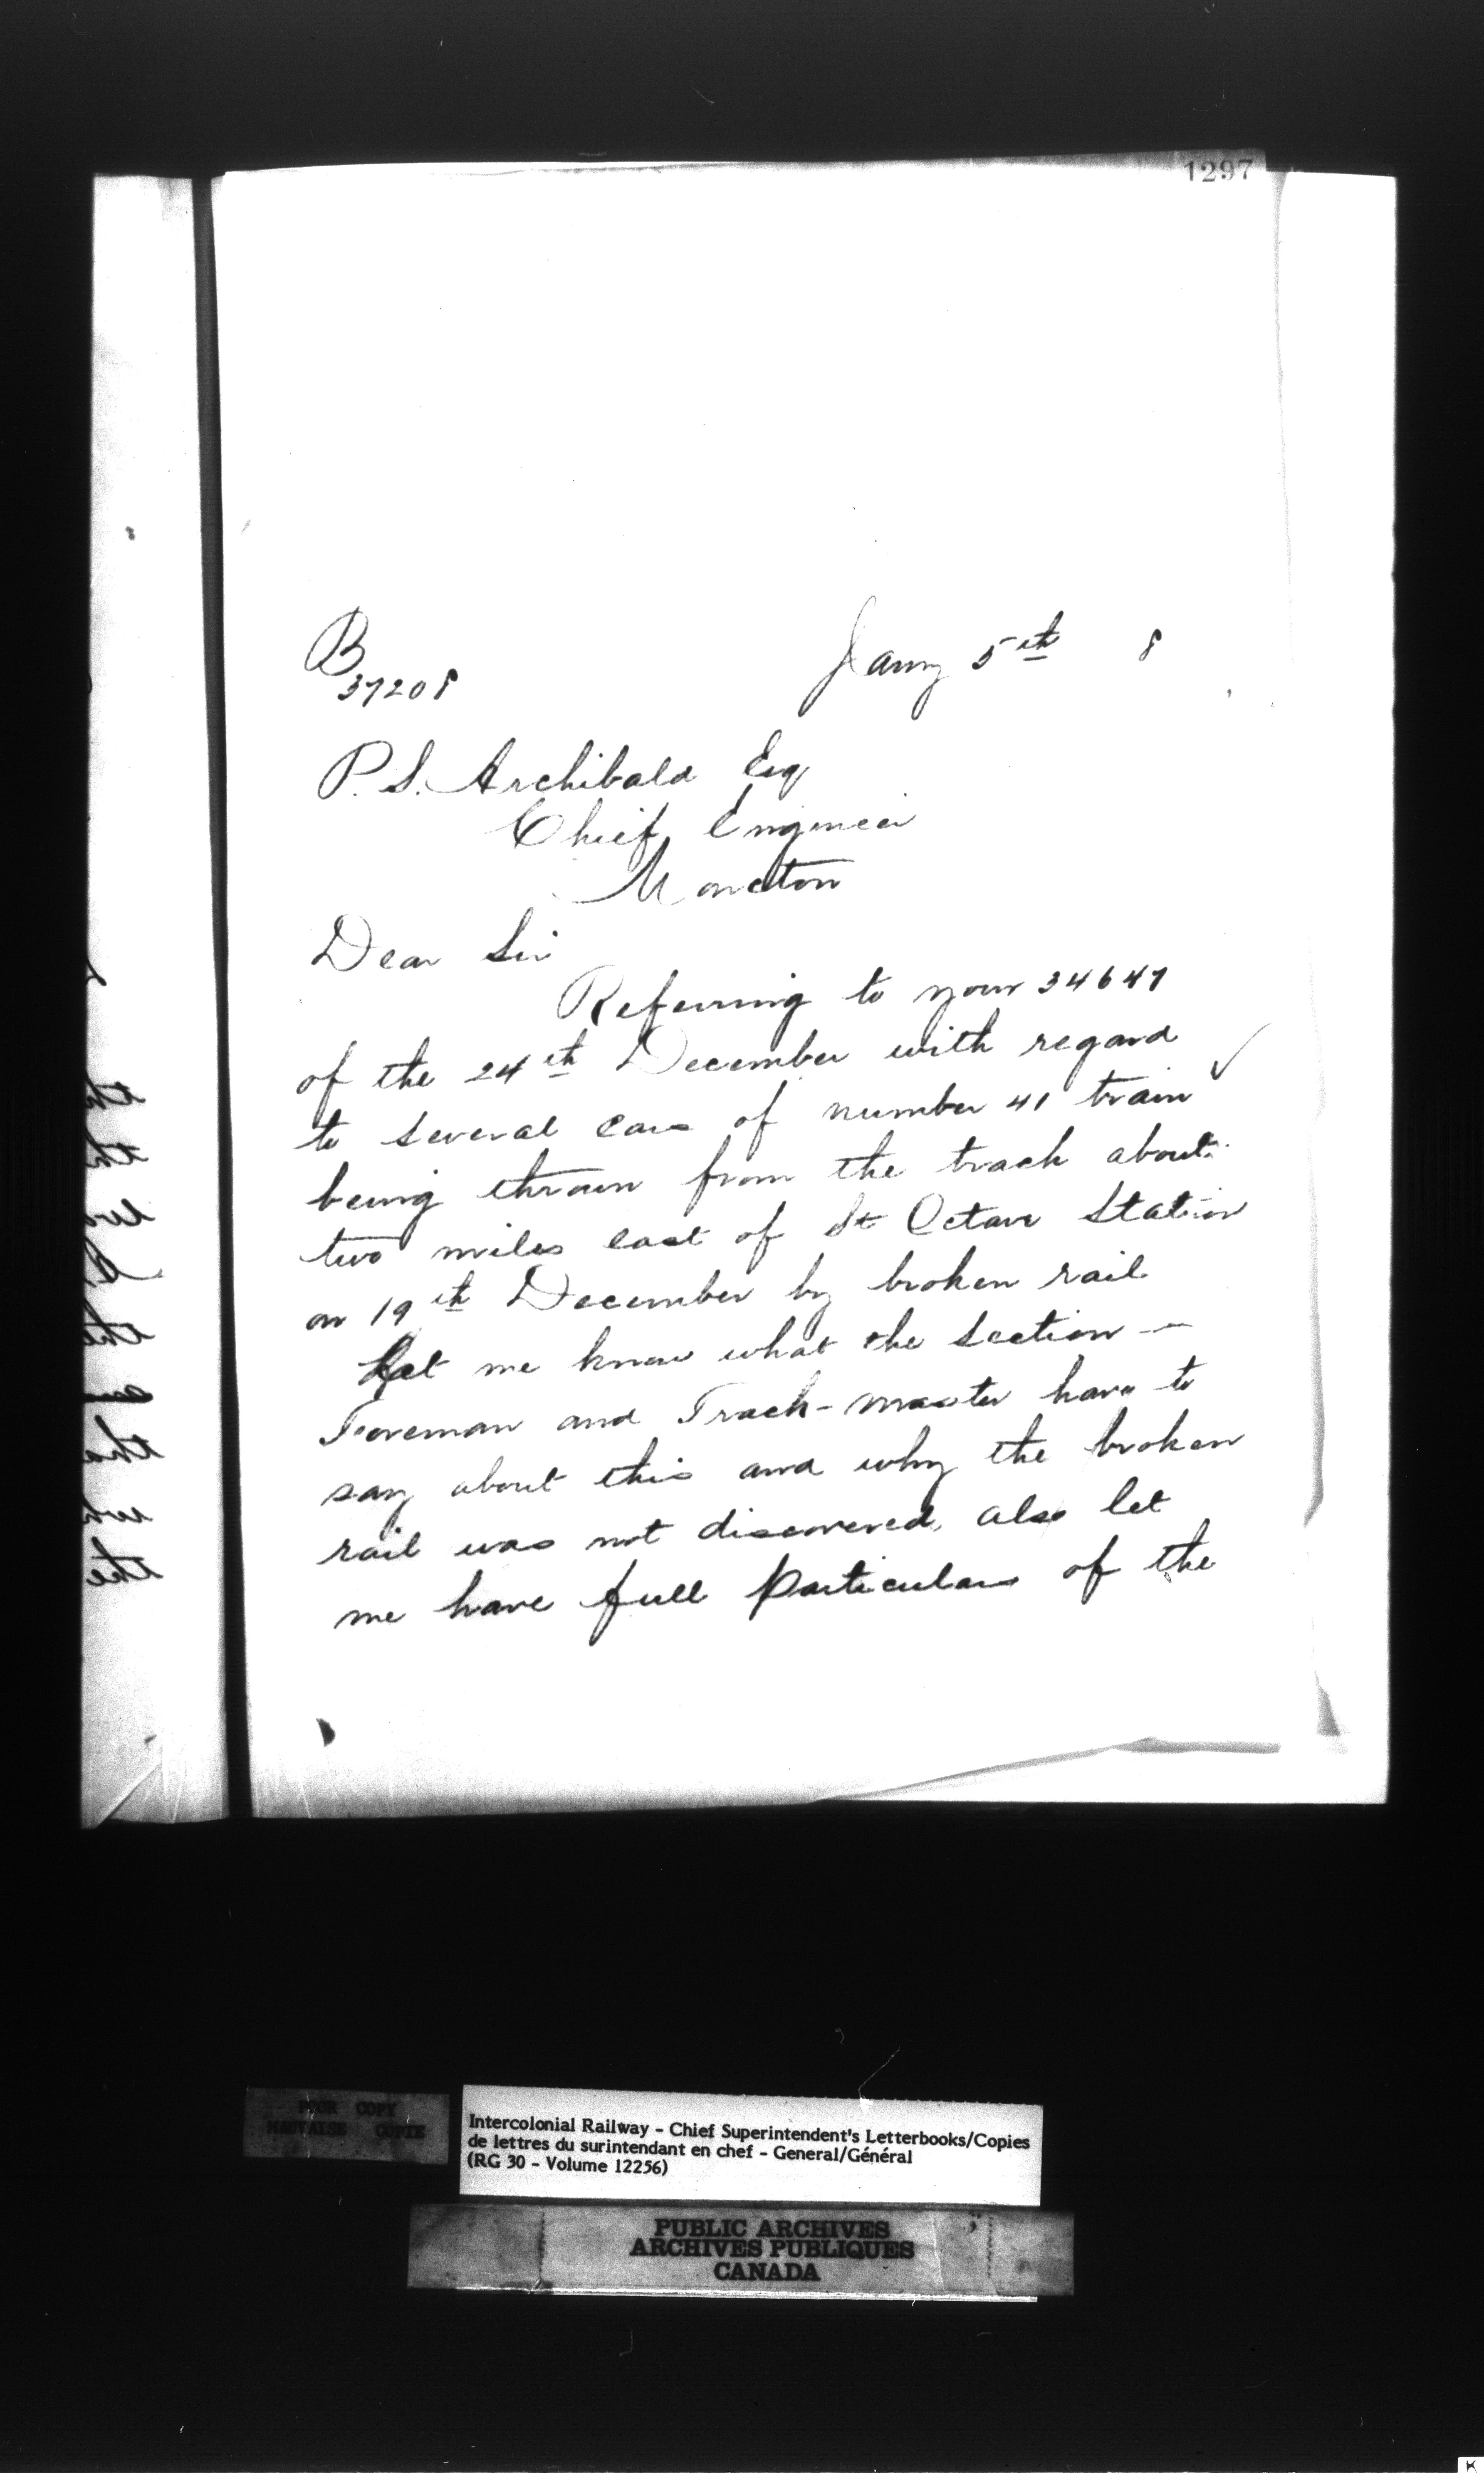 1297
B
37208
Jany 5th 8
P. S. Archibald Esq
Chief Engineer
Moncton
Dear Sir
Referring to your 34647
of the 24th December with regard
to several cars of number 41 train
being thrown from the track about
two miles east of St Octave Station
on 19th December by broken rail.
Let me know what the Section -
Foreman and Track-master have to
say about this and why the broken
rail was not discovered, also let
me have full particulars of the
POOR COPY
MAUVAISE COPIE
Intercolonial Railway - Chief Superintendent's Letterbooks/Copies
de lettres du surintendant en chef - General/Général
(RG 30 - Volume 12256)
PUBLIC ARCHIVES
ARCHIVES PUBLIQUES
CANADA